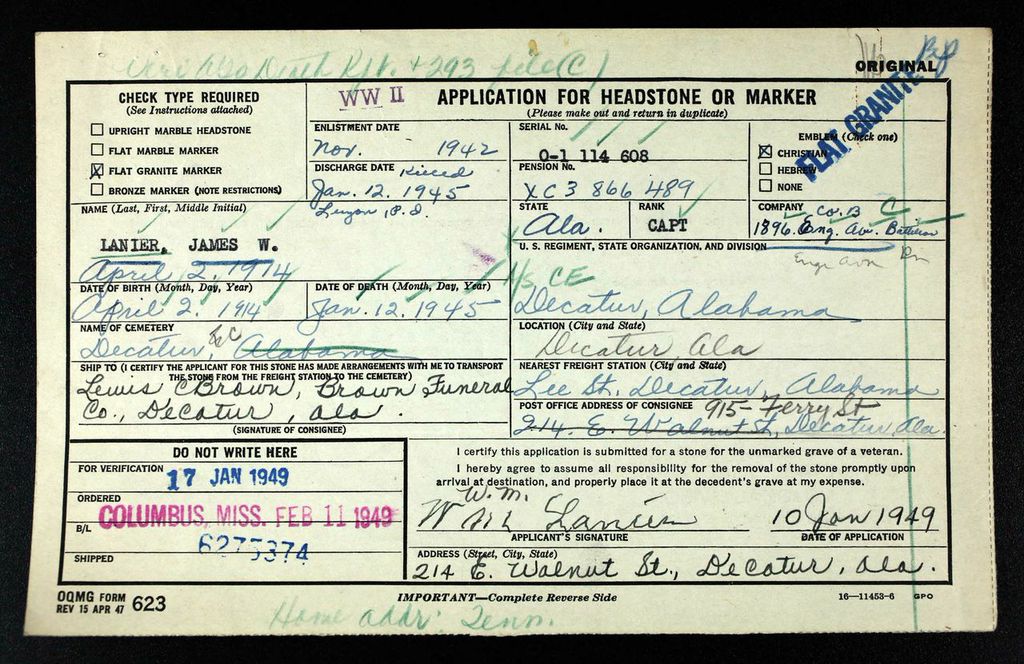 Veri Also Death Rpt. + 293 file (C)
ORIGINAL
FLAT GRANITE
CHECK TYPE REQUIRED
(See Instructions attached)
☐ UPRIGHT MARBLE HEADSTONE
☐ FLAT MARBLE MARKER
☒ FLAT GRANITE MARKER
☐ BRONZE MARKER (NOTE RESTRICTIONS)
WW II
APPLICATION FOR HEADSTONE OR MARKER
(Please make out and return in duplicate)
ENLISTMENT DATE
Nov. 1942
DISCHARGE DATE Killed
Jan. 12. 1945
Luzon P.I.
SERIAL No.
O-1 114 608
PENSION No.
XC 3 866 489
EMBLEM (Check one)
☒ CHRISTIAN
☐ HEBREW
☐ NONE
NAME (Last, First, Middle Initial)
LANIER, JAMES W.
April 2. 1914
STATE
Ala.
RANK
CAPT
COMPANY Co. B C
1896. Eng. Av. Battalion
U. S. REGIMENT, STATE ORGANIZATION, AND DIVISION
Engr Avn Bn
H/S CE
DATE OF BIRTH (Month, Day, Year)
April 2. 1914
DATE OF DEATH (Month, Day, Year)
Jan. 12. 1945
Decatur, Alabama
NAME OF CEMETERY
Decatur, Alabama
LOCATION (City and State)
Decatur Ala
SHIP TO (I CERTIFY THE APPLICANT FOR THIS STONE HAS MADE ARRANGEMENTS WITH ME TO TRANSPORT
THE STONE FROM THE FREIGHT STATION TO THE CEMETERY)
Lewis C Brown, Brown Funeral
Co., Decatur, Ala.
(SIGNATURE OF CONSIGNEE)
NEAREST FREIGHT STATION (City and State)
Lee St. Decatur, Alabama
POST OFFICE ADDRESS OF CONSIGNEE 915- Ferry St
214. E. Walnut St, Decatur, Ala.
DO NOT WRITE HERE
FOR VERIFICATION
17 JAN 1949
ORDERED
COLUMBUS, MISS. FEB 11 1949
B/L
6275374
SHIPPED
I certify this application is submitted for a stone for the unmarked grave of a veteran.
I hereby agree to assume all responsibility for the removal of the stone promptly upon
arrival at destination, and properly place it at the decedent's grave at my expense.
W. M.
W M Lanier 10 Jan 1949
APPLICANT'S SIGNATURE DATE OF APPLICATION
ADDRESS (Street, City, State)
214 E. Walnut St., Decatur, Ala.
OQMG FORM
REV 15 APR 47 623
IMPORTANT—Complete Reverse Side
16—11453-6 GPO
Home addr: Tenn.